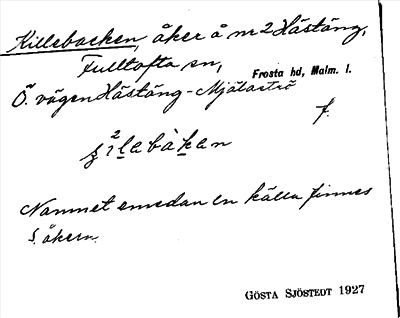 Killebacken, åker å nr 2 Hästäng,
Fulltofta sn,
Frosta hd, Malm. l.
Ö. vägen Hästäng - Mjälaströ
f.
Namnet emedan en källa finnes
i åkern.
GÖSTA SJÖSTEDT 1927